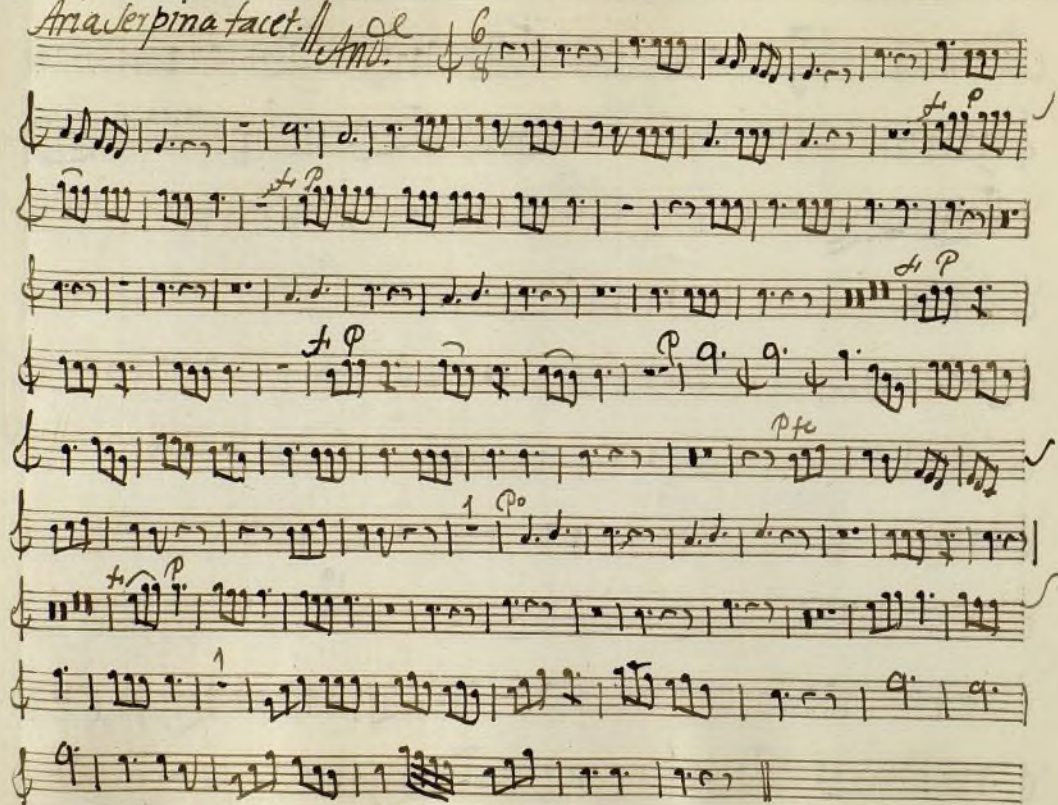 Aria Serpina tacet. // And.e 6 8
f P
f P
f P
f P P
P fe
1 Po
f P
1